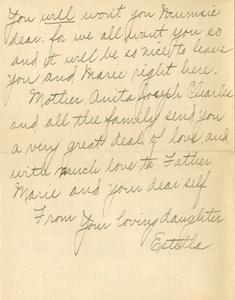 You will won't you Mumsie
dear. for we all want you so
and it will be so nice to have
you and Marie right here.
Mother, Anita Joseph Charles
and all the family send you
a very great deal of love, and
with much love to Father
Marie and your dear self
From Your loving daughter
Estella